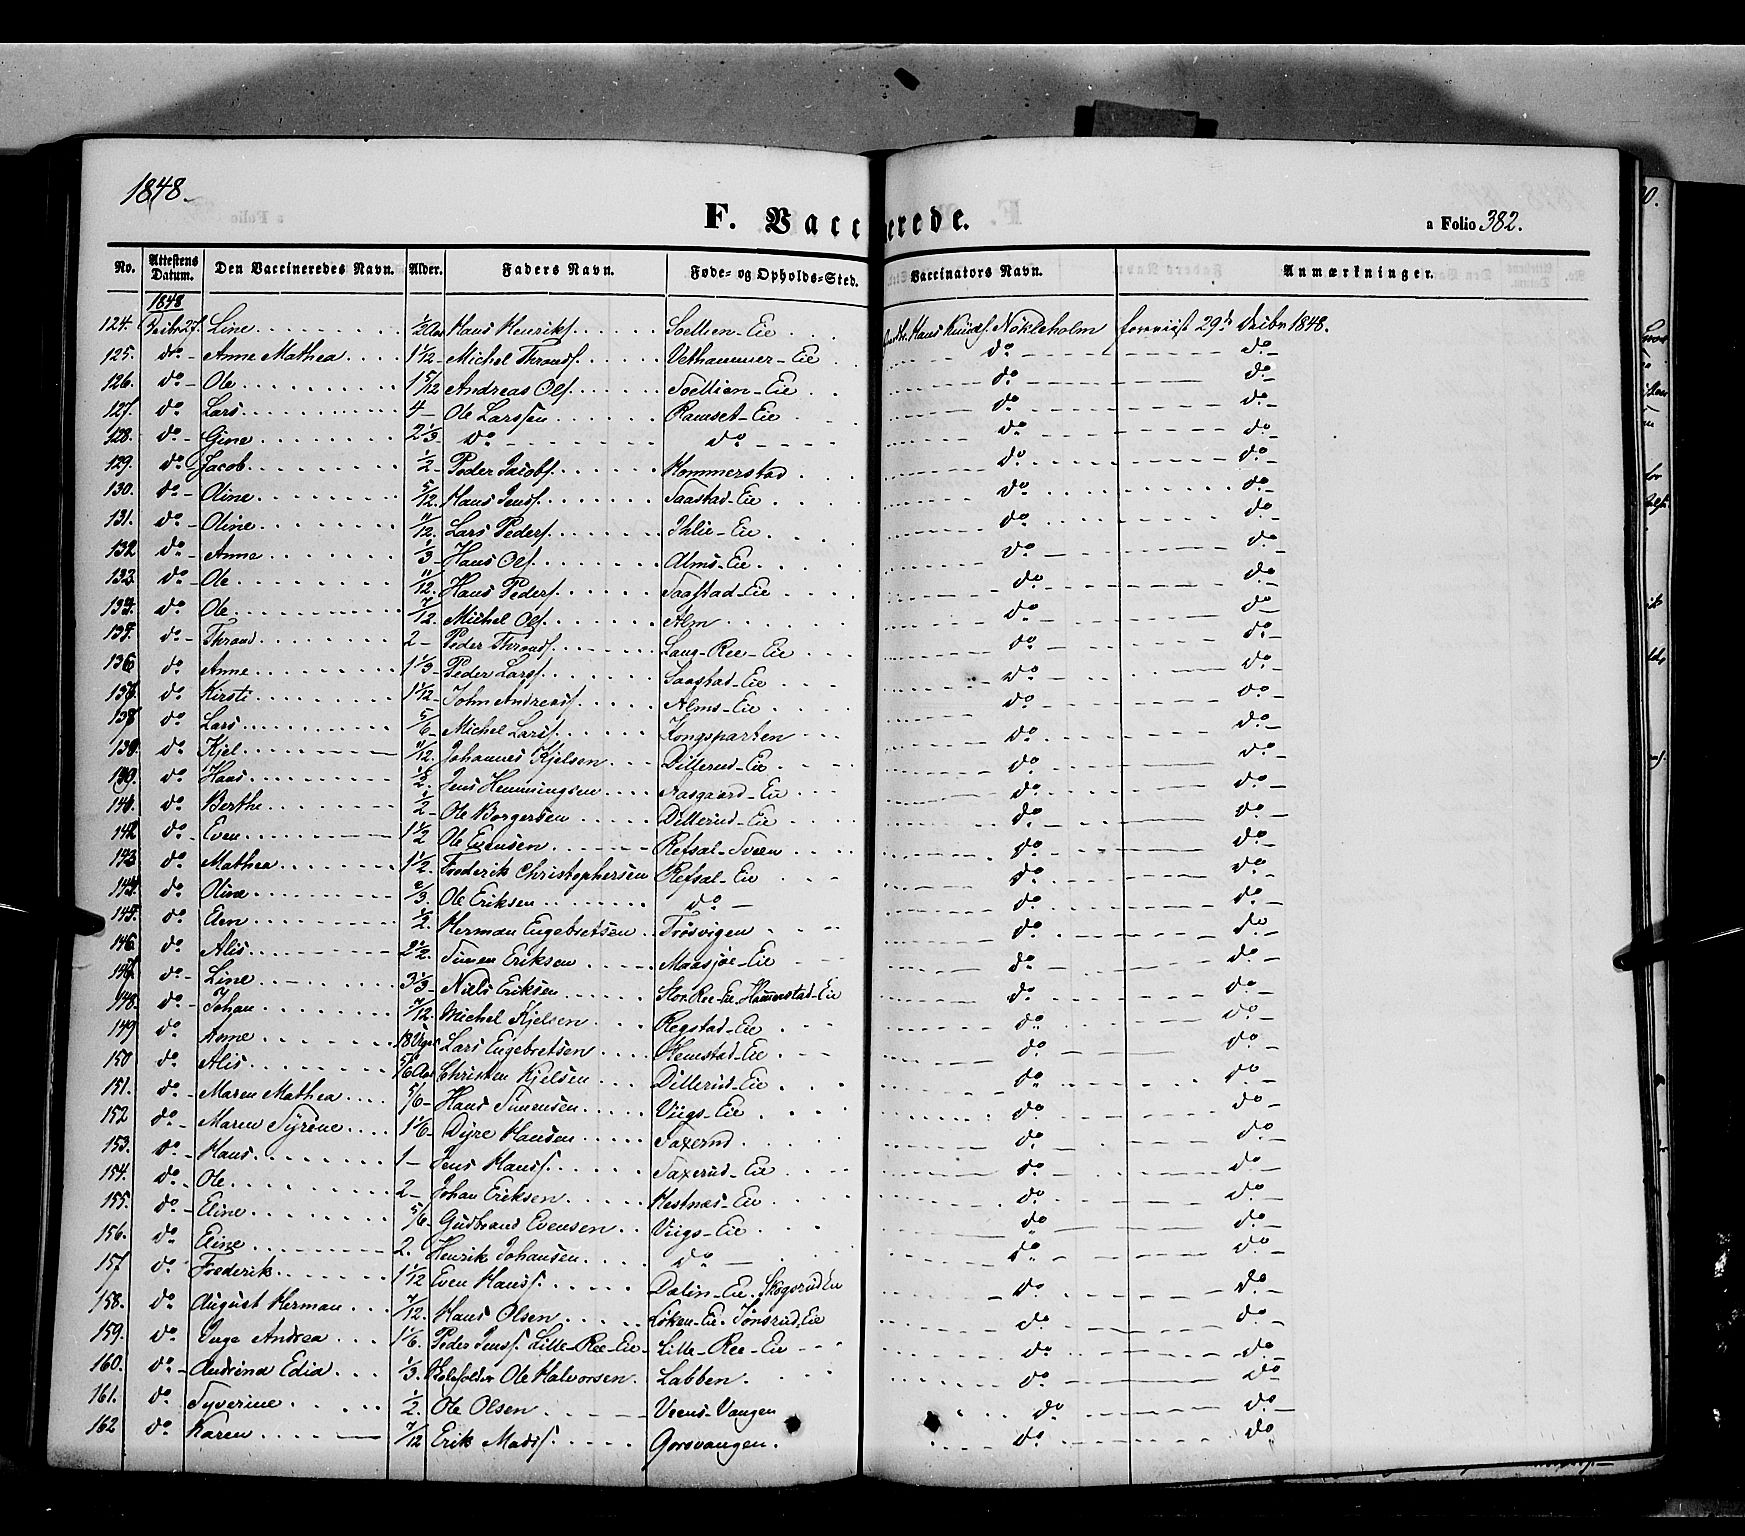 1848.
F. Vaccinerede.
a Folio 382.
No. Attestens Datum. Den Vaccineredes Navn. Alder. Faders Navn. Føde- og Opholds-Sted. Vaccinators Navn. Anmærkninger.
1848
124. Dcibr 27. Line 1/2 Aar Hans Henriks. Soellien-Eie Hans Knuds. Nøkleholm foreviist 29de Dcibr 1848.
125. do Anne Mathea 1 1/12 Michel Thronds. Vethammer-Eie do do
126. do Ole 1 5/12 Andreas Ols. Soellien-Eie do do
127. do Lars 4 Ole Larssen Ramset-Eie do do
128. do Gine 2 1/3 do do do do
129. do Jacob 1/2 Peder Jacobs. Hommerstad do do
130. do Oline 5/12 Hans Jens. Saastad-Eie do do
131. do Oline 11/12 Lars Peders. Ihlie-Eie do do
132 do Anne 1/3 Hans Ols. Alms-Eie do do
133. do Ole 11/12 Hans Peders. Saastad-Eie do do
134. do Ole 7/12 Michel Ols. Alm do do
135. do Thron 2 Peder Thronds. Lang-Ree-Eie do do
136 do Anne 1 1/3 Peder Lars. Saastad-Eie do do
137. do Kirsti 1 1/12 John Andreas. Alms-Eie do do
138 do Lars 5/6 Michel Lars. Kongsparten do do
139. do Kjel Johannes Kjelsen Dillerud-Eie do do
do Hans 1/2 Jens Hemmingsen Aasgaard-Eie do do
141. do Berthe 1/2 Ole Borgersen Dillerud-Eie do do
142 do Even 1 1/2 Ole Evensen Refsal-Sveen do do
143 do Mathea 1 1/2 Frederik Christophersen Refsal-Eie do do
144. do Olive 2/3 Ole Eriksen do do do
145. do Elen 1/2 Herman Engebretsen Trosvigen do do
146. do Alis 2 1/2 Simen Eriksen Maasjøe-Eie do do
147. do Line 3 1/3 Niels Eriksen Stor-Ree-Eie. Hammerstad-Eie do do
148. do Johan 7/12 Michel Kjelsen Regstad-Eie do do
149. do Anne 18 Uger Lars Engebretsen Hemstad-Eie do do
150 do Alis 5/6 Aar Christen Kjelsen Dillerud-Eie do do
151. do Maren Mathea 5/6 Hans Simensen Viigs-Eie do do
152 do Maren Syrene 1 1/6 Dyre Hansen Saxerud do do
153. do Hans 1 Jens Hans. Saxerud-Eie do do
154. do Ole 2 Johan Eriksen Hestnæs-Eie do do
155. do Eline 5/6 Gudbrand Evensen Viigs-Eie do do
156. do Eline 2. Henrik Johansen do do do
157 do Frederik 1 1/12 Even Hans. Dalin-Eie. Skogsrud Eie do do
158. do August Herman 7/12 Hans Olsen Løken-Eie. Jønsrud-Eie do do
159. do Inge Andrea 1 1/6 Peder Jens. Lille-Ree-Eie Lille-Ree-Eie do do
160. do Andrina Edia 1/3 Ole Halvorsen Labben. do do
161. do Syverine 1/2 Ole Olsen Veens-Vangen do do
162 do Karen 7/12 Erik Mads. Gorsvangen. do do